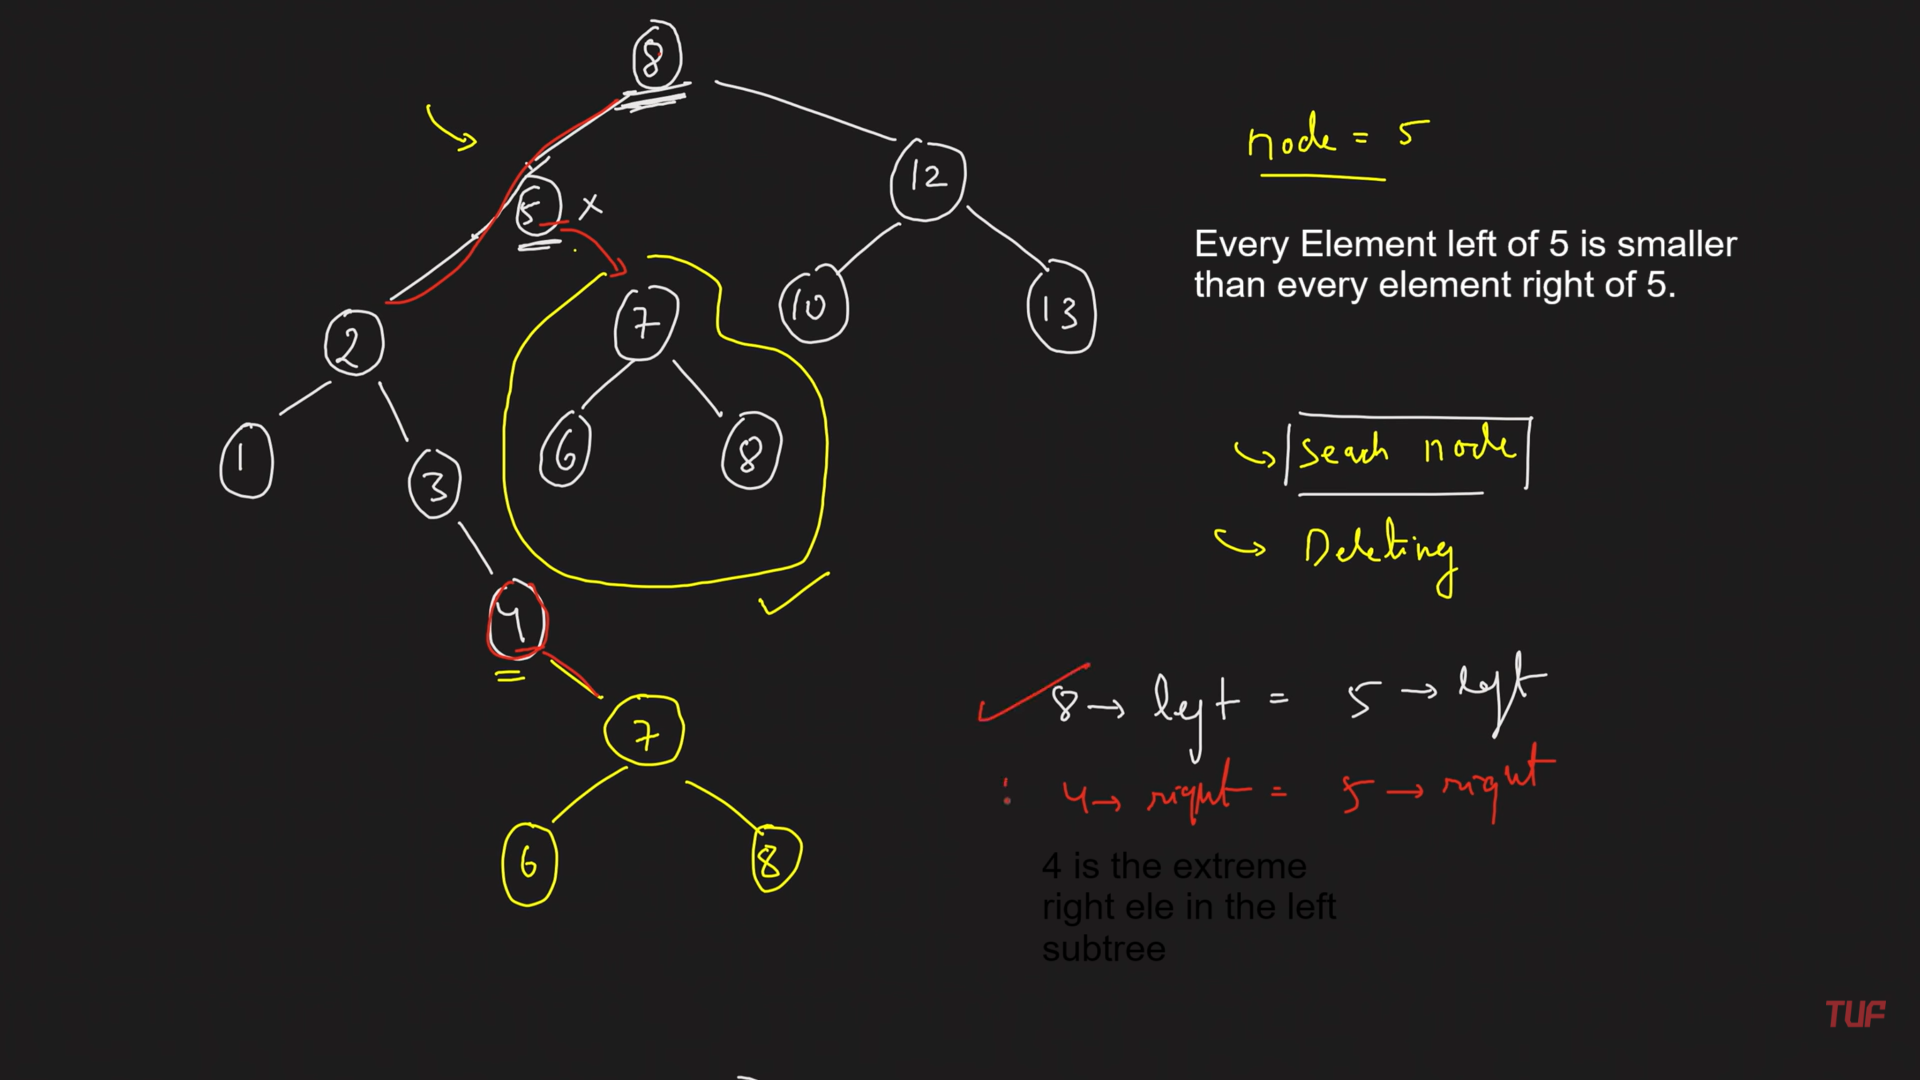 8
5 x
12
2
7
10
13
1
3
6
8
4
7
6
8
node = 5
Every Element left of 5 is smaller
than every element right of 5.
Seach node
Deleting
8 → left = 5 → left
: 4 → right = 5 → right
4 is the extreme
right ele in the left
subtree
TUF